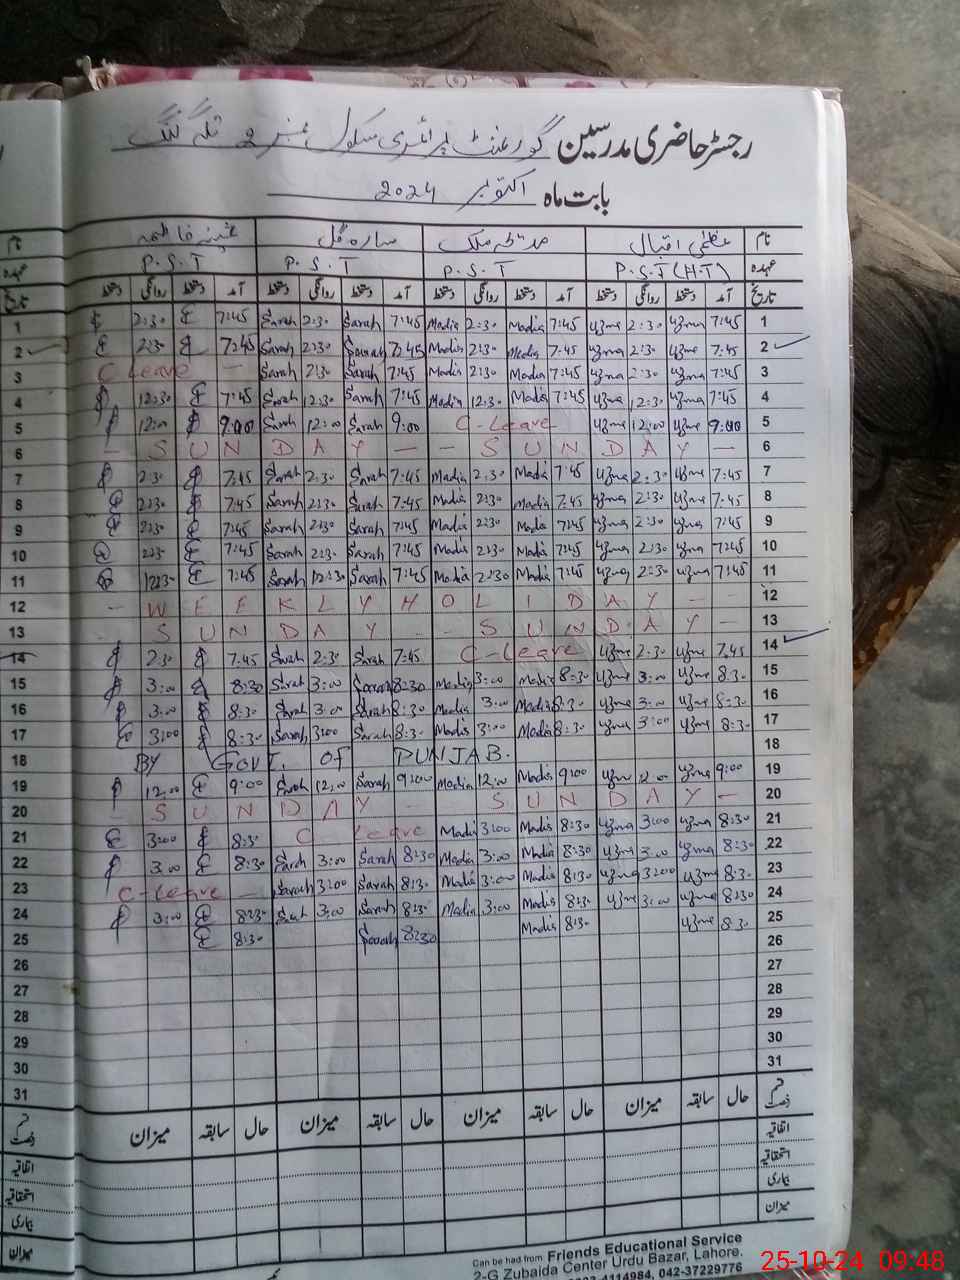 رجسٹر حاضری مدرسین گورنمنٹ پرائمری سکول نمبر 2 تلہ گنگ
بابت ماہ اکتوبر 2024
نام عظمیٰ اقبال مدیحہ ملک سارہ گل فاطمہ نام
عہدہ P.S.T (H.T) P.S.T P.S.T P.S.T عہدہ
تاریخ آمد دستخط روانگی دستخط آمد دستخط روانگی دستخط آمد دستخط روانگی دستخط آمد دستخط روانگی دستخط تاریخ
1 2:30 7:45 Sarah 2:30 Sarah 7:45 Madia 2:30 Madia 7:45 Uzma 2:30 Uzma 7:45 1
2 2:30 7:45 Sarah 2:30 Sarah 7:45 Madia 2:30 Madia 7:45 Uzma 2:30 Uzma 7:45 2
3 C Leave — Sarah 2:30 Sarah 7:45 Madia 2:30 Madia 7:45 Uzma 2:30 Uzma 7:45 3
4 12:30 7:45 Sarah 12:30 Sarah 7:45 Madia 12:30 Madia 7:45 Uzma 12:30 Uzma 7:45 4
5 12:00 9:00 Sarah 12:00 Sarah 9:00 C-Leave Uzma 12:00 Uzma 9:00 5
6 — SUNDAY — — SUNDAY — 6
7 2:30 7:45 Sarah 2:30 Sarah 7:45 Madia 2:30 Madia 7:45 Uzma 2:30 Uzma 7:45 7
8 2:30 7:45 Sarah 2:30 Sarah 7:45 Madia 2:30 Madia 7:45 Uzma 2:30 Uzma 7:45 8
9 2:30 7:45 Sarah 2:30 Sarah 7:45 Madia 2:30 Madia 7:45 Uzma 2:30 Uzma 7:45 9
10 2:30 7:45 Sarah 2:30 Sarah 7:45 Madia 2:30 Madia 7:45 Uzma 2:30 Uzma 7:45 10
11 12:30 7:45 Sarah 12:30 Sarah 7:45 Madia 2:30 Madia 7:45 Uzma 2:30 Uzma 7:45 11
12 — WEEKLY HOLIDAY — — 12
13 — SUNDAY — — SUNDAY — 13
14 2:30 7:45 Sarah 2:30 Sarah 7:45 C-Leave Uzma 2:30 Uzma 7:45 14
15 3:00 8:30 Sarah 3:00 Sarah 8:30 Madia 3:00 Madia 8:30 Uzma 3:00 Uzma 8:30 15
16 3:00 8:30 Sarah 3:00 Sarah 8:30 Madia 3:00 Madia 8:30 Uzma 3:00 Uzma 8:30 16
17 3:00 8:30 Sarah 3:00 Sarah 8:30 Madia 3:00 Madia 8:30 Uzma 3:00 Uzma 8:30 17
18 BY GOVT. OF PUNJAB. 18
19 12:00 9:00 Sarah 12:00 Sarah 9:00 Madia 12:00 Madia 9:00 Uzma 12:00 Uzma 9:00 19
20 — SUNDAY — SUNDAY — 20
21 3:00 8:30 C- Leave Madia 3:00 Madia 8:30 Uzma 3:00 Uzma 8:30 21
22 3:00 8:30 Sarah 3:00 Sarah 8:30 Madia 3:00 Madia 8:30 Uzma 3:00 Uzma 8:30 22
23 C-Leave — Sarah 3:00 Sarah 8:30 Madia 3:00 Madia 8:30 Uzma 3:00 Uzma 8:30 23
24 3:00 8:30 Sarah 3:00 Sarah 8:30 Madia 3:00 Madia 8:30 Uzma 3:00 Uzma 8:30 24
25 8:30 Sarah 8:30 Madia 8:30 Uzma 8:30 25
26 26
27 27
28 28
29 29
30 30
31 31
قسم رخصت حال سابقہ میزان حال سابقہ میزان حال سابقہ میزان حال سابقہ میزان قسم رخصت
اتفاقیہ اتفاقیہ
استحقاقیہ استحقاقیہ
بیماری بیماری
میزان میزان
Can be had from Friends Educational Service
2-G Zubaida Center Urdu Bazar, Lahore.
4114984, 042-37229776
25-10-24 09:48